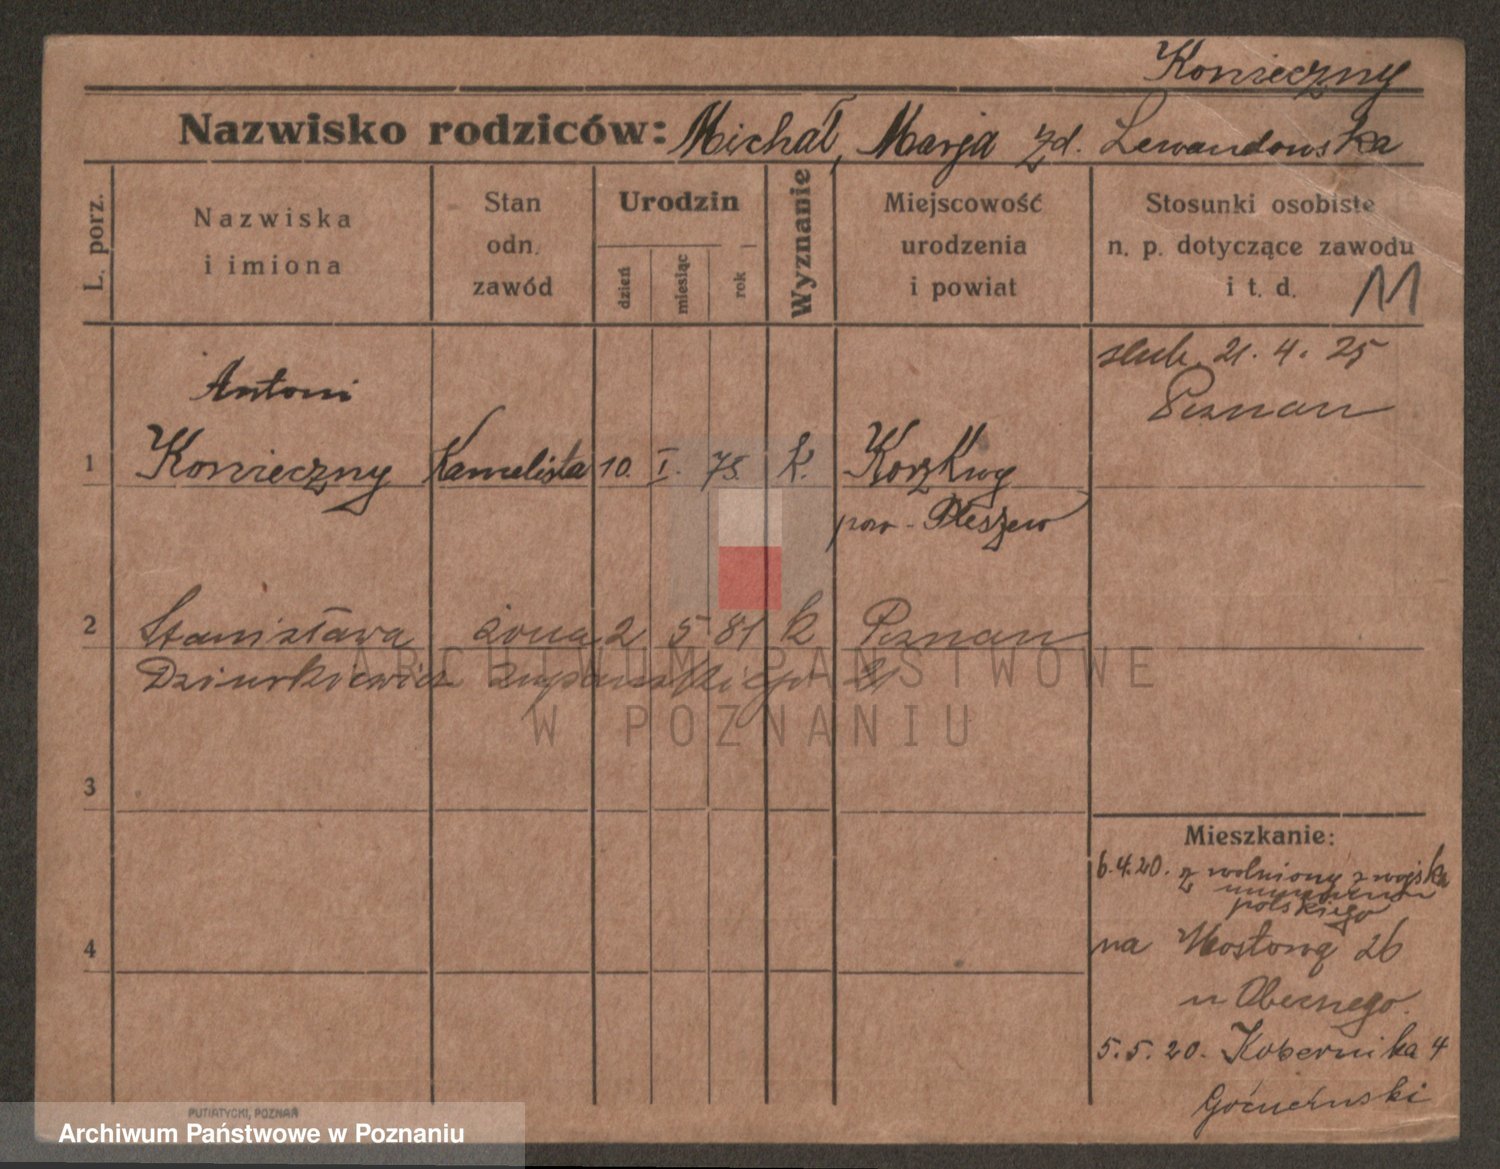 Konieczny
Nazwisko rodziców: Michał, Marja zd. Lewandowska
L. porz.
Nazwiska
i imiona
Stan
odn.
zawód
Urodzin
dzień
miesiąc
rok
Wyznanie
Miejscowość
urodzenia
i powiat
Stosunki osobiste
n. p. dotyczące zawodu
i t. d.
M
ślub 21. 4. 25
Poznan
Antoni
1 Konieczny Kancelista 10. I. 75. k. Korzkwy
pow - Pleszew
2 Stanisława żona 2 5 81 k Poznan
Dziurkiewicz
3
4
Mieszkanie:
6.4.20. zwolniony z wojska
polskiego
na Mostową 26
u Obecnego.
5.5.20. Kobernika 4
ARCHIWUM PAŃSTWOWE
W POZNANIU
PUTIATYCKI, POZNAŃ
Archiwum Państwowe w Poznaniu